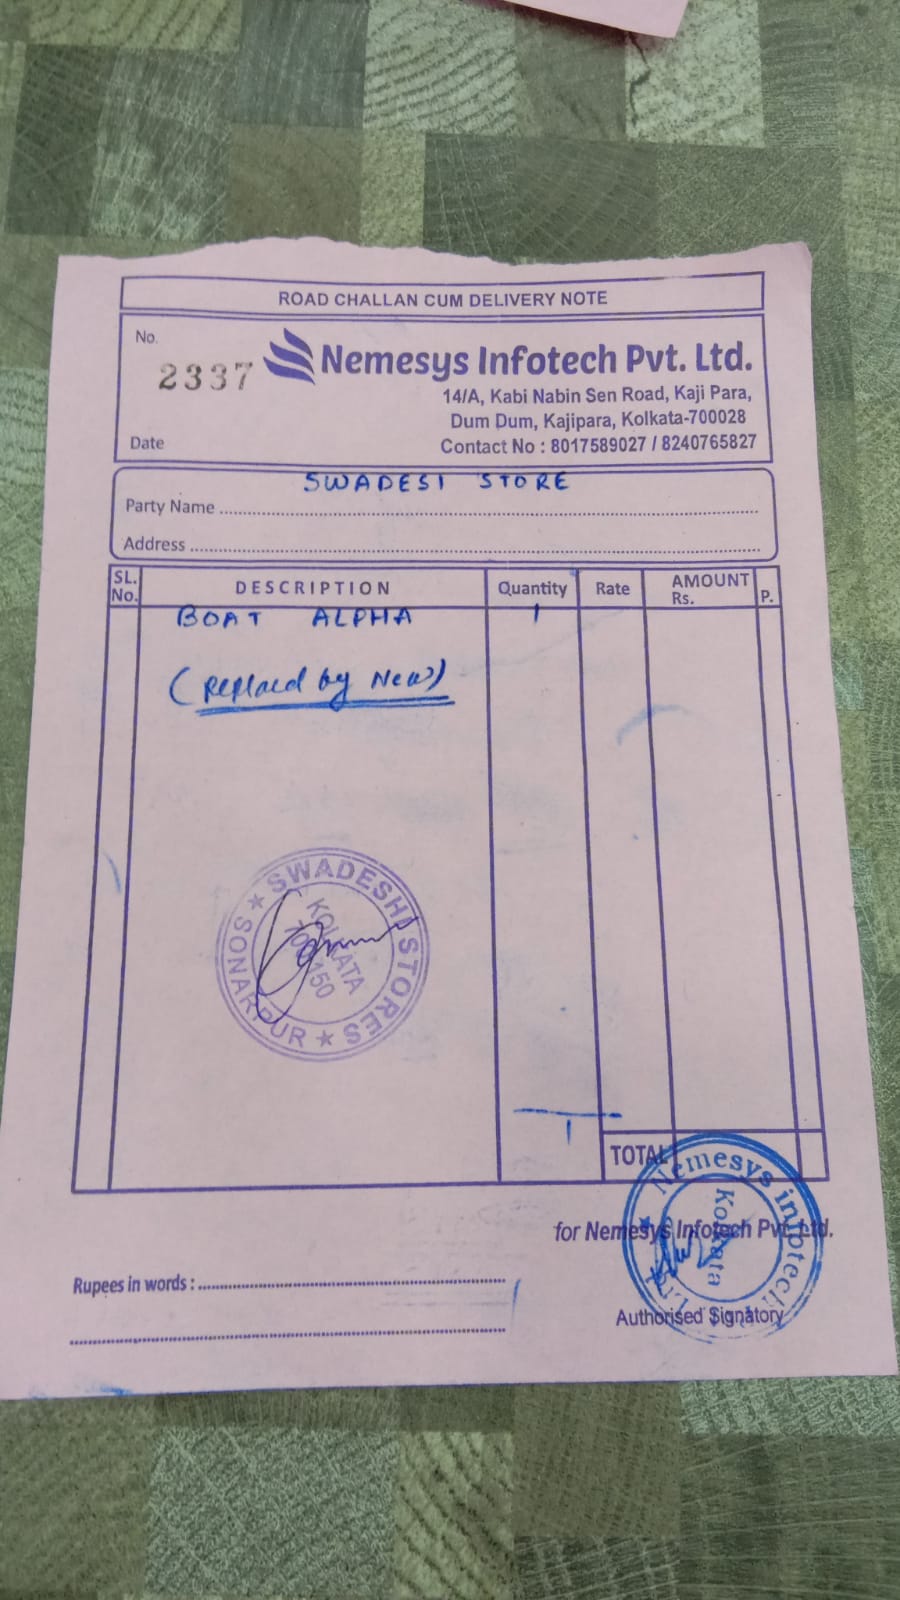 ROAD CHALLAN CUM DELIVERY NOTE
No.
2337
Nemesys Infotech Pvt. Ltd.
14/A, Kabi Nabin Sen Road, Kaji Para,
Dum Dum, Kajipara, Kolkata-700028
Date
Contact No : 8017589027 / 8240765827
SWADESI STORE
Party Name
Address
SL. No. DESCRIPTION Quantity Rate AMOUNT Rs. P.
BOAT ALPHA 1
(Replaed by New)
SWADESHI STORES ★ SONARPUR ★
KOLKATA
700150
1
TOTAL
Nemesys infotech
Kolkata
for Nemesys Infotech Pvt. Ltd.
Rupees in words :
Authorised Signatory